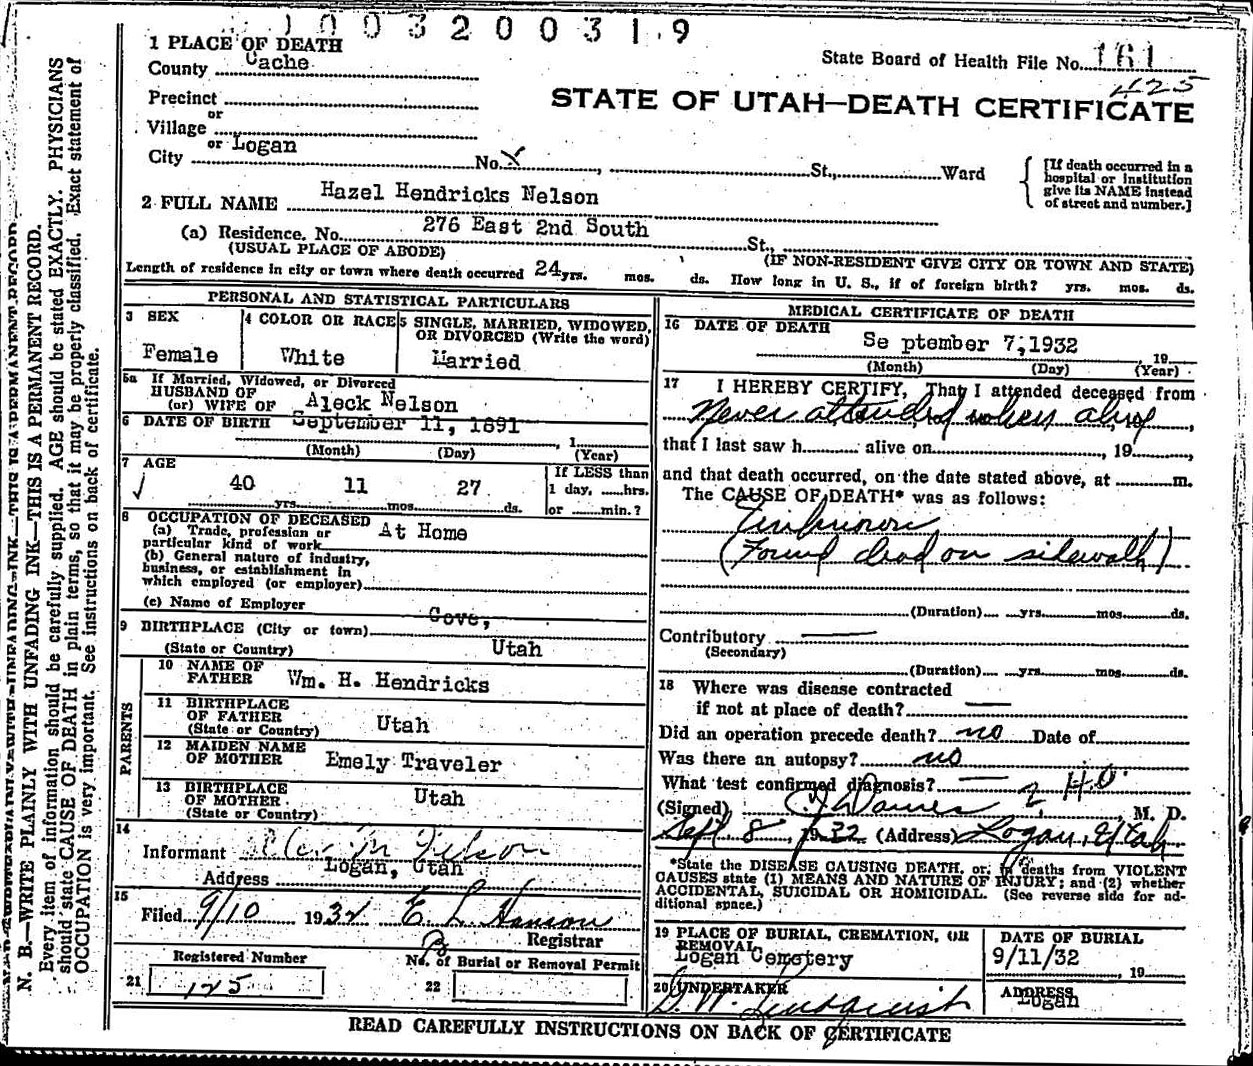 1003200319
1 PLACE OF DEATH
County Cache
State Board of Health File No. 161
425
Precinct
or
STATE OF UTAH—DEATH CERTIFICATE
Village
or Logan
City No. X , St., Ward
[If death occurred in a hospital or institution give its NAME instead of street and number.]
2 FULL NAME Hazel Hendricks Nelson
(a) Residence. No. 276 East 2nd South St.,
(USUAL PLACE OF ABODE) (IF NON-RESIDENT GIVE CITY OR TOWN AND STATE)
Length of residence in city or town where death occurred 24 yrs. mos. ds. How long in U. S., if of foreign birth? yrs. mos. ds.
PERSONAL AND STATISTICAL PARTICULARS
3 SEX
Female
4 COLOR OR RACE
White
5 SINGLE, MARRIED, WIDOWED, OR DIVORCED (Write the word)
Married
5a If Married, Widowed, or Divorced
HUSBAND OF
(or) WIFE OF Aleck Nelson
6 DATE OF BIRTH September 11, 1891
, 1
(Month) (Day) (Year)
7 AGE
40 11 27
yrs. mos. ds.
If LESS than
1 day, hrs.
or min.?
8 OCCUPATION OF DECEASED
(a) Trade, profession or
particular kind of work At Home
(b) General nature of industry,
business, or establishment in
which employed (or employer)
(c) Name of Employer
9 BIRTHPLACE (City or town) Cove,
(State or Country) Utah
PARENTS
10 NAME OF FATHER Wm. H. Hendricks
11 BIRTHPLACE OF FATHER
(State or Country) Utah
12 MAIDEN NAME OF MOTHER Emely Traveler
13 BIRTHPLACE OF MOTHER
(State or Country) Utah
14
Informant Alex M Nelson
Address Logan, Utah
15
Filed 9/10 1932 E. L. Hanson
Registrar
Registered Number
21 125
No. of Burial or Removal Permit
22
MEDICAL CERTIFICATE OF DEATH
16 DATE OF DEATH
Se ptember 7,1932
, 19
(Month) (Day) (Year)
17 I HEREBY CERTIFY, That I attended deceased from
Never attended when alive
that I last saw h alive on , 19 ,
and that death occurred, on the date stated above, at m.
The CAUSE OF DEATH* was as follows:
Unknown
(Found dead on sidewalk)
(Duration) yrs. mos. ds.
Contributory —
(Secondary)
(Duration) yrs. mos. ds.
18 Where was disease contracted
if not at place of death? —
Did an operation precede death? no Date of
Was there an autopsy? no
What test confirmed diagnosis? —
(Signed) , M. D.
Sept 8, 1932 (Address) Logan, Utah
*State the DISEASE CAUSING DEATH, or, in deaths from VIOLENT
CAUSES state (1) MEANS AND NATURE OF INJURY; and (2) whether
ACCIDENTAL, SUICIDAL OR HOMICIDAL. (See reverse side for additional space.)
19 PLACE OF BURIAL, CREMATION, OR REMOVAL
Logan Cemetery
DATE OF BURIAL
9/11/32
, 19
20 UNDERTAKER
G. W. Lindquist
ADDRESS
Logan
READ CAREFULLY INSTRUCTIONS ON BACK OF CERTIFICATE
N. B.—WRITE PLAINLY WITH UNFADING INK—THIS IS A PERMANENT RECORD.
Every item of information should be carefully supplied. AGE should be stated EXACTLY. PHYSICIANS
should state CAUSE OF DEATH in plain terms, so that it may be properly classified. Exact statement of
OCCUPATION is very important. See instructions on back of certificate.